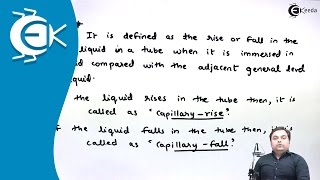 EK
Ekeeda
It is defined as the rise or fall in the
liquid in a tube when it is immersed in
compared with the adjacent general level
quid.
the liquid rises in the tube then, it is
called as "Capillary-rise".
the liquid falls in the tube then, it is
called as "Capillary-fall".